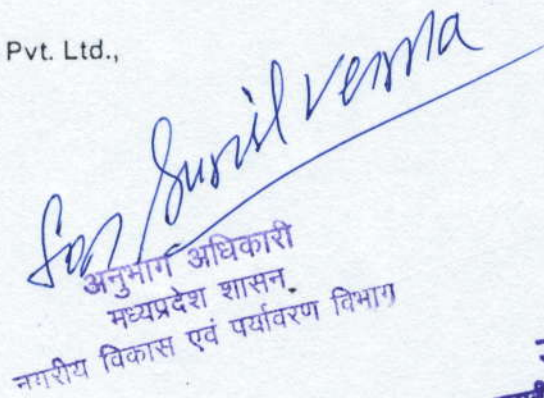 Pvt. Ltd.,
for Sunil Verma
अनुभाग अधिकारी
मध्यप्रदेश शासन.
नगरीय विकास एवं पर्यावरण विभाग